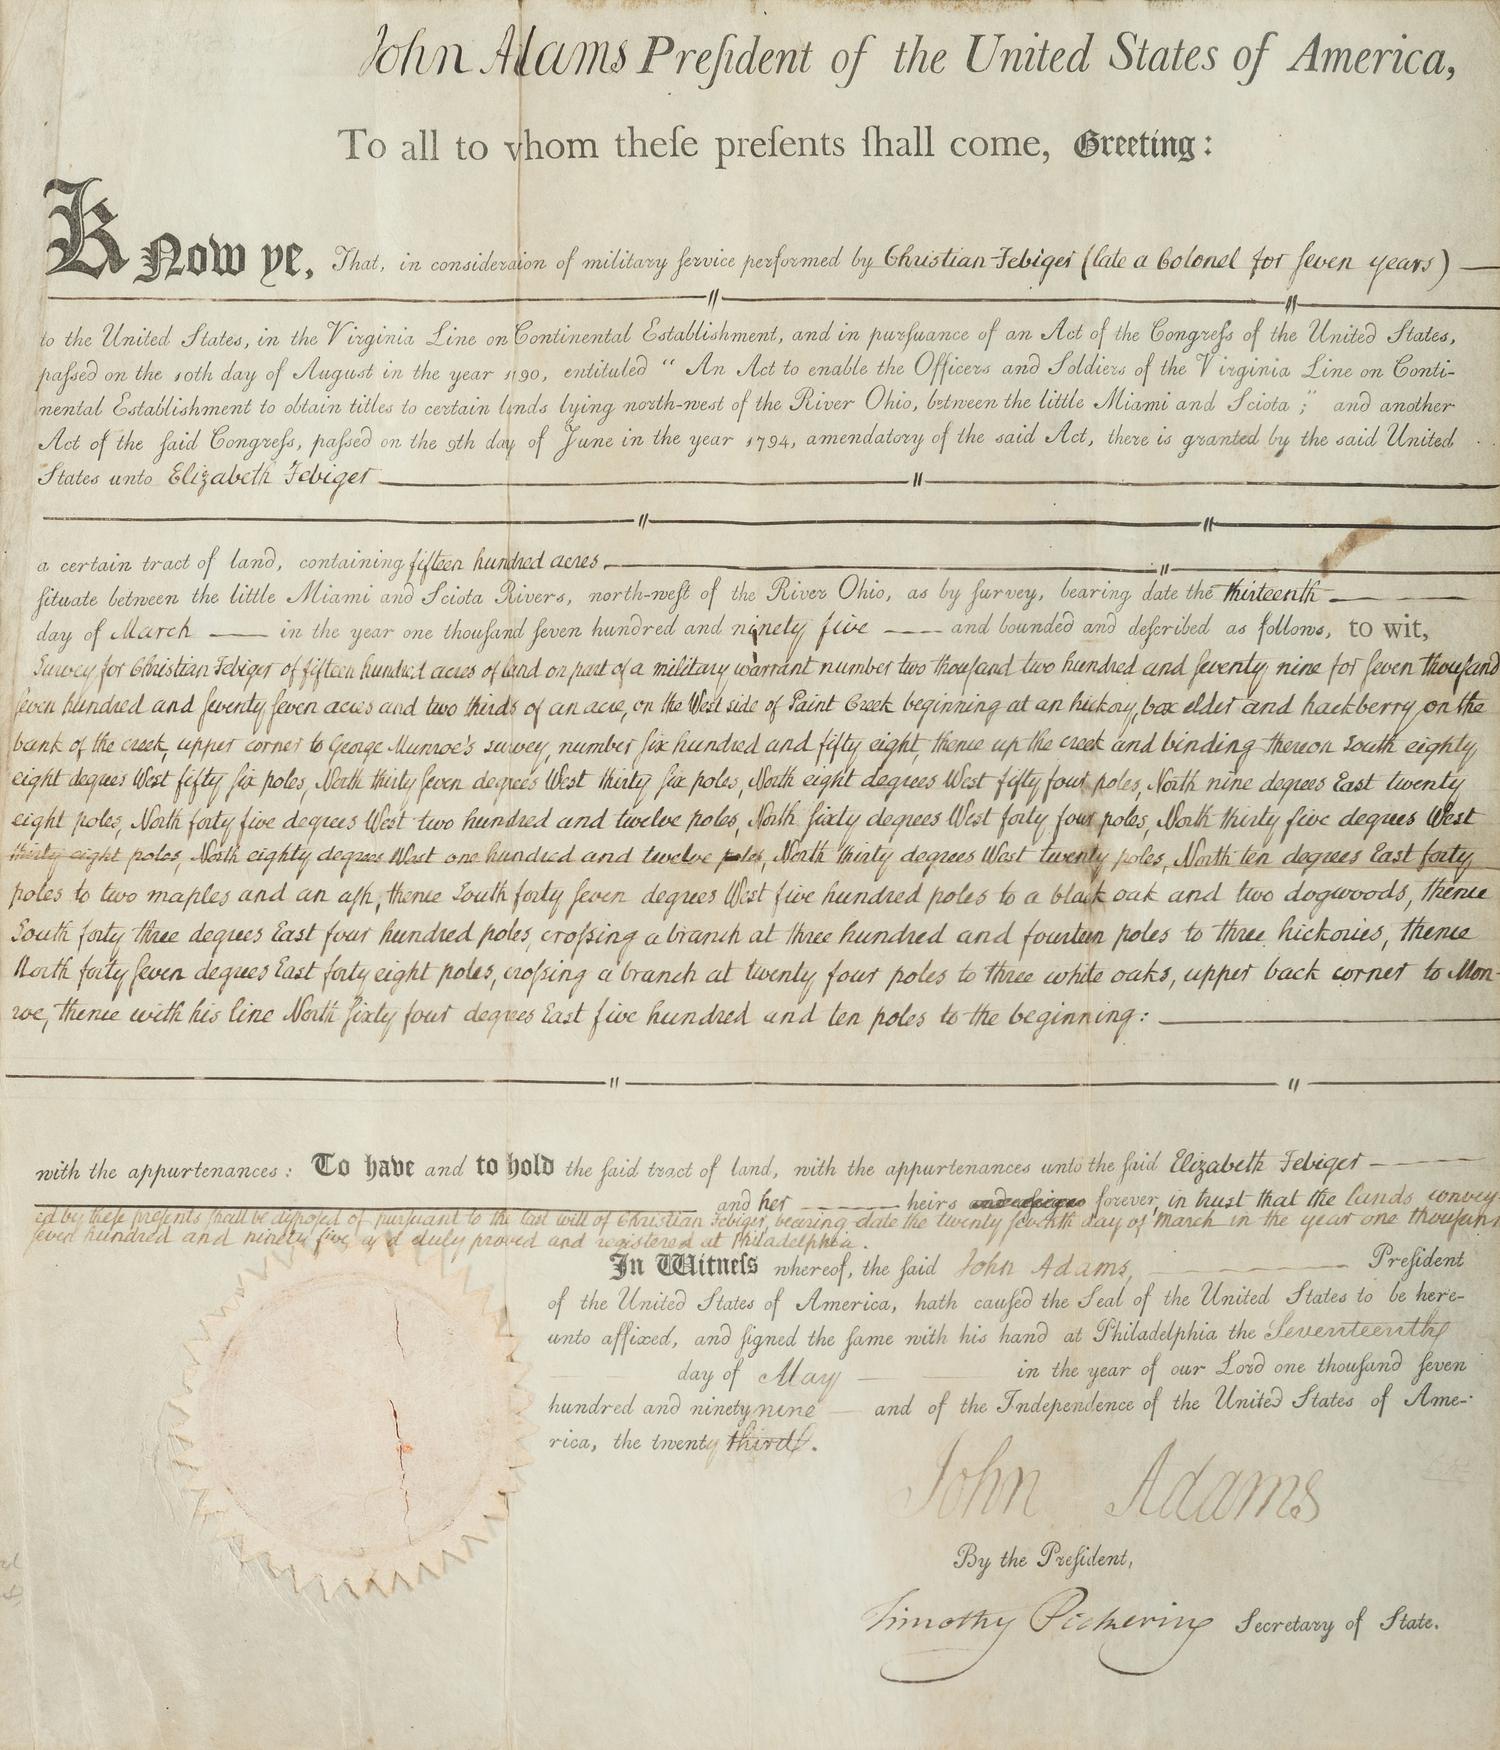 John Adams Preſident of the United States of America,
To all to whom theſe preſents ſhall come, Greeting:
Know ye, That, in consideraion of military ſervice performed by Christian Febiger (late a Colonel for ſeven years)
to the United States, in the Virginia Line on Continental Establishment, and in purſuance of an Act of the Congreſs of the United States,
paſsed on the 10th day of August in the year 1790, entituled “ An Act to enable the Officers and Soldiers of the Virginia Line on Conti-
nental Establishment to obtain titles to certain lands lying north-west of the River Ohio, between the little Miami and Sciota ;” and another
Act of the ſaid Congreſs, paſsed on the 9th day of June in the year 1794, amendatory of the said Act, there is granted by the said United
States unto Elizabeth Febiger
a certain tract of land, containing fifteen hundred acres
ſituate between the little Miami and Sciota Rivers, north-weſt of the River Ohio, as by ſurvey, bearing date the thirteenth
day of March in the year one thouſand ſeven hundred and ninety five and bounded and deſcribed as follows, to wit,
Survey for Christian Febiger of fifteen hundred acres of land on part of a military warrant number two thouſand two hundred and ſeventy nine for ſeven thouſand
ſeven hundred and ſeventy ſeven acres and two thirds of an acre, on the West side of Paint Creek beginning at an hickory, box elder and hackberry on the
bank of the creek, upper corner to George Munroe's survey, number ſix hundred and fifty eight, thence up the creek and binding thereon South eighty
eight degrees West fifty ſix poles, North thirty ſeven degrees West thirty ſix poles, North eight degrees West fifty four poles, North nine degrees East twenty
eight poles, North forty five degrees West two hundred and twelve poles, North ſixty degrees West forty four poles, North thirty five degrees West
thirty eight poles, North eighty degrees West one hundred and twelve poles, North thirty degrees West twenty poles, North ten degrees East forty
poles to two maples and an aſh, thence South forty ſeven degrees West five hundred poles to a black oak and two dogwoods, thence
South forty three degrees East four hundred poles, croſsing a branch at three hundred and fourteen poles to three hickories, thence
North forty ſeven degrees East forty eight poles, croſsing a branch at twenty four poles to three white oaks, upper back corner to Mon-
roe, thence with his line North ſixty four degrees East five hundred and ten poles to the beginning:
with the appurtenances: To have and to hold the ſaid tract of land, with the appurtenances unto the ſaid Elizabeth Febiger
and her heirs and aſsigns forever, in trust that the lands convey-
ed by theſe preſents ſhall be diſpoſed of purſuant to the last will of Christian Febiger, bearing date the twenty ſeventh day of March in the year one thouſand
ſeven hundred and ninety five, and duly proved and registered at Philadelphia.
In Witneſs whereof, the ſaid John Adams, Preſident
of the United States of America, hath cauſed the Seal of the United States to be here-
unto affixed, and ſigned the ſame with his hand at Philadelphia the Seventeenth
day of May in the year of our Lord one thouſand ſeven
hundred and ninety nine and of the Independence of the United States of Ame-
rica, the twenty third.
John Adams
By the Preſident,
Timothy Pickering Secretary of State.